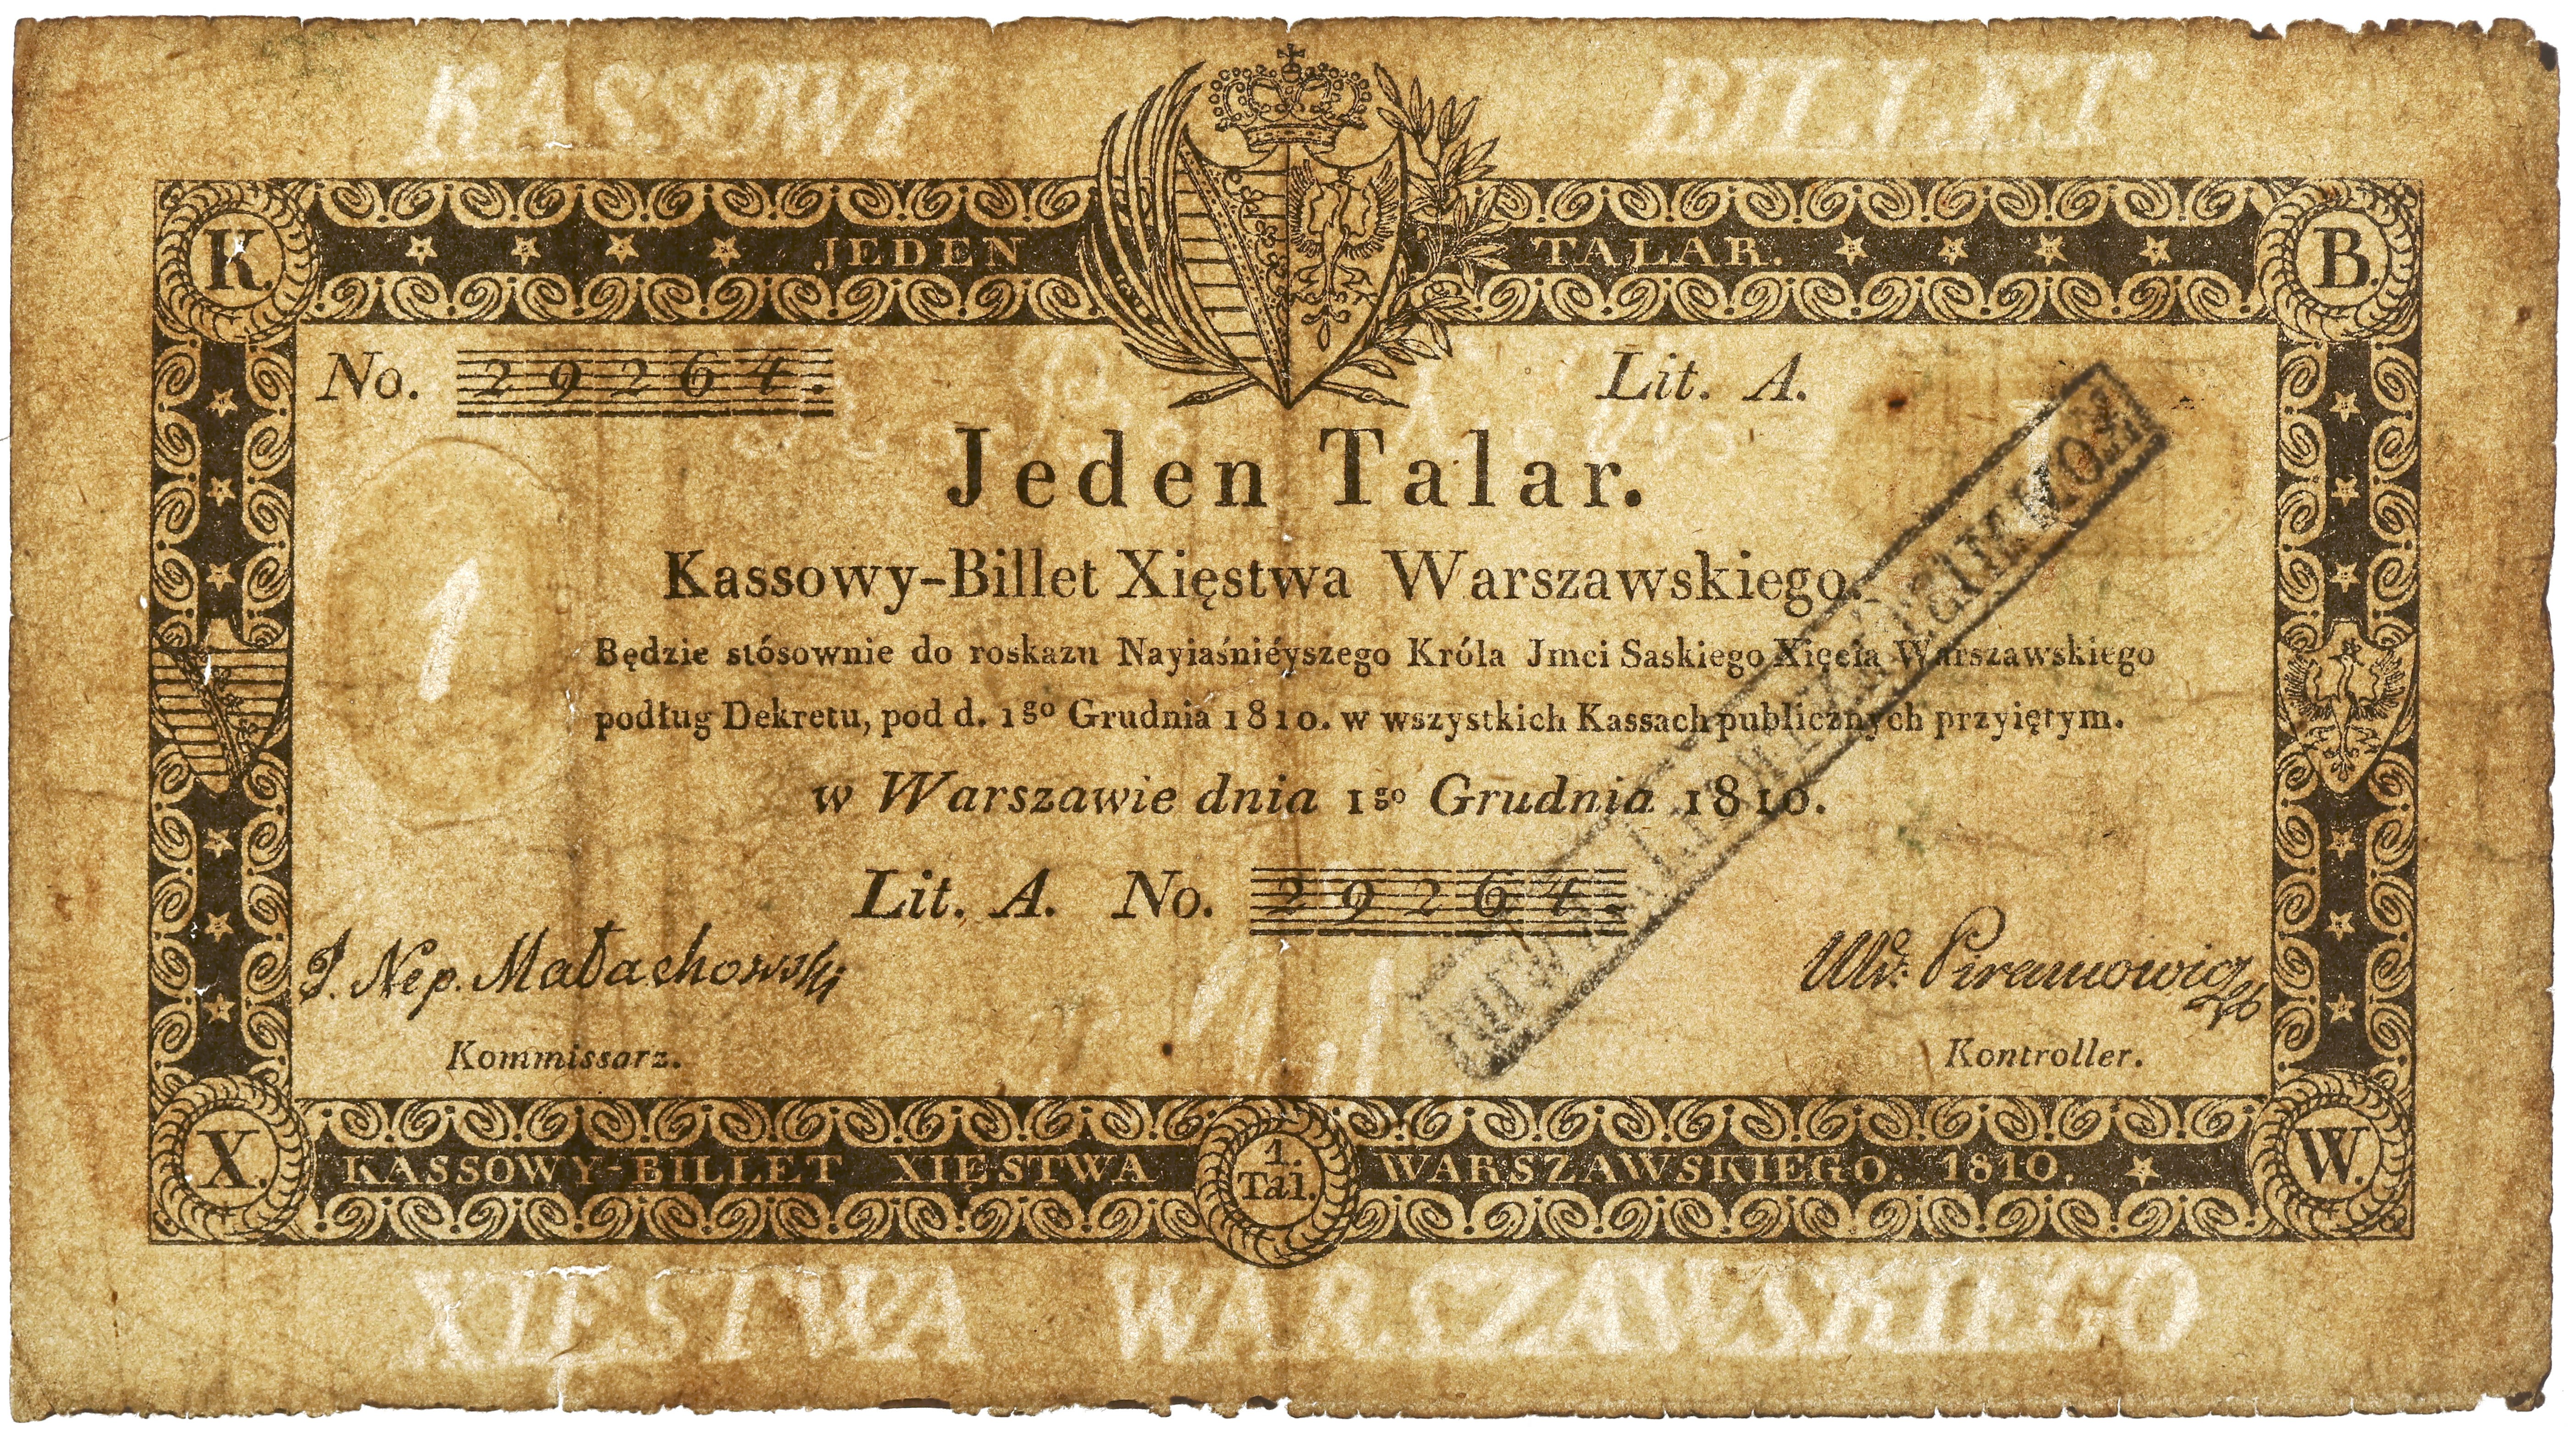 KASSOWY BILLET
K. JEDEN TALAR. B.
No. 29264. Lit. A.
Jeden Talar.
1
Kassowy-Billet Xięstwa Warszawskiego.
Będzie stósownie do roskazu Nayiaśniéyszego Króla Jmci Saskiego Xięcia Warszawskiego
podług Dekretu, pod d. 1go Grudnia 1810. w wszystkich Kassach publicznych przyiętym.
w Warszawie dnia 1go Grudnia 1810.
Lit. A. No. 29264.
J. Nep. Małachowski
Wd: Piramowicz
Kommissarz. Kontroller.
X. KASSOWY-BILLET XIĘSTWA 1. Tal. WARSZAWSKIEGO. 1810. W.
XIESTWA WARSZAWSKIEGO